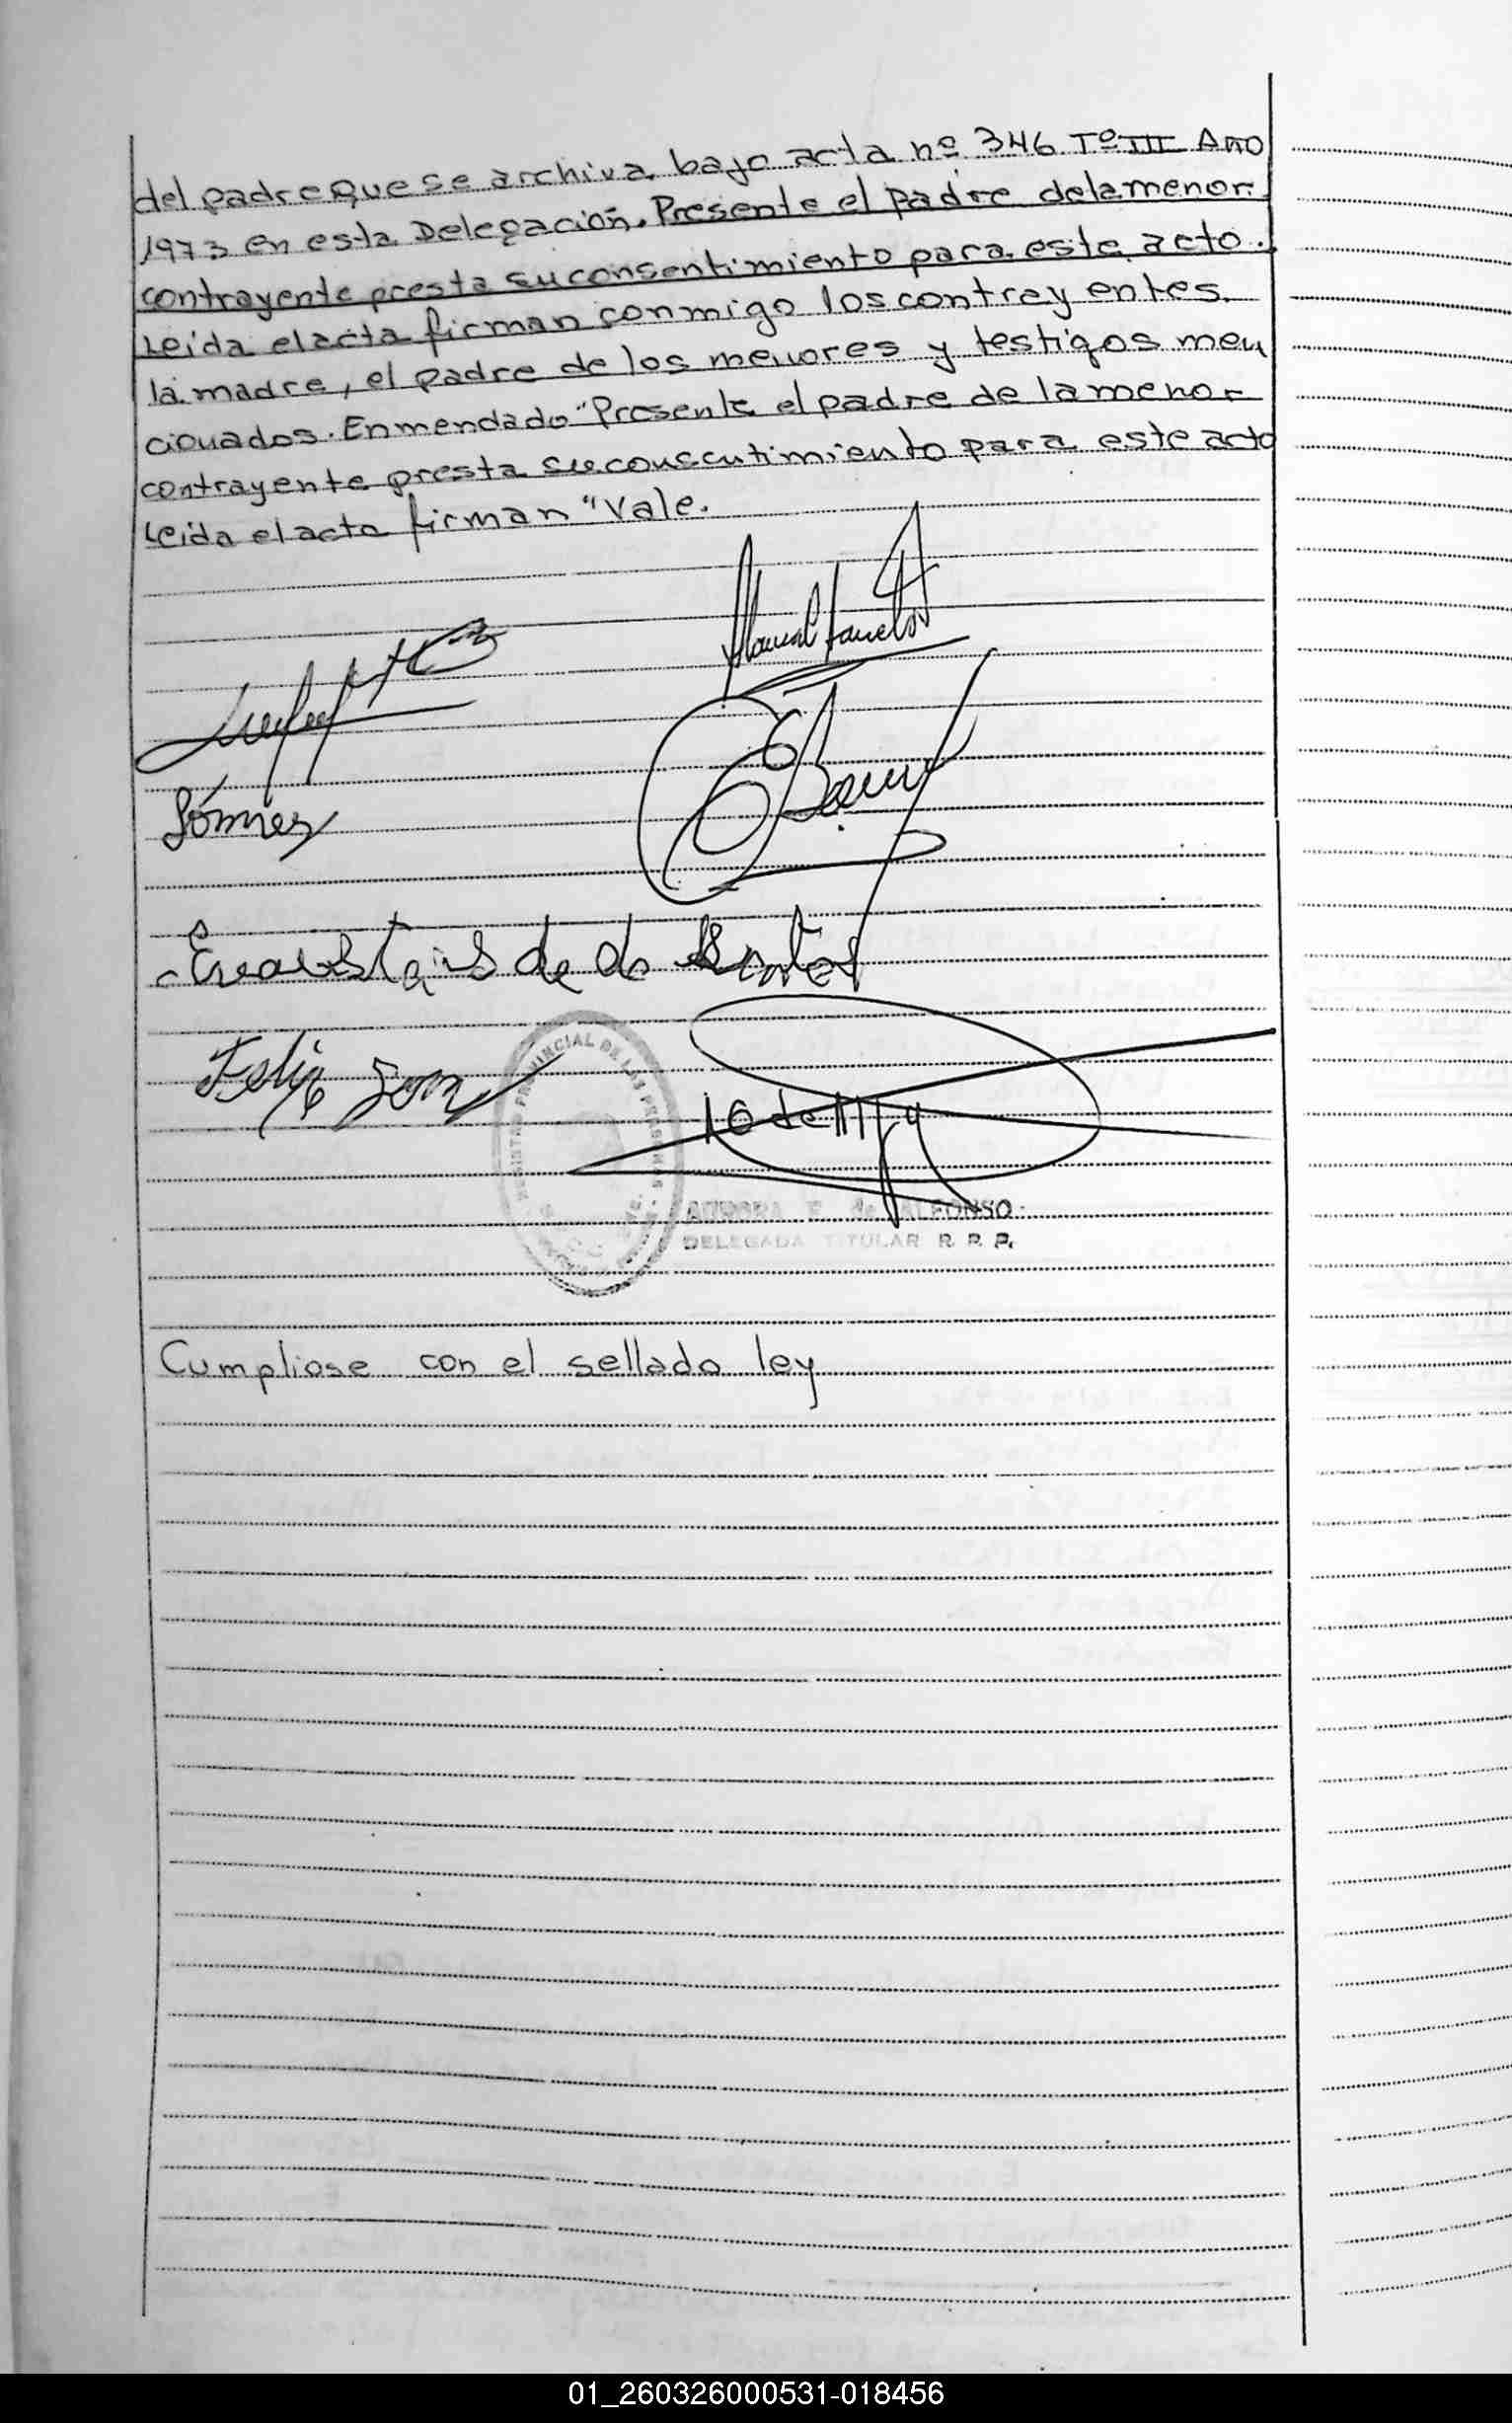 del padre que se archiva bajo acta nº 346 Tº III Año
1973 en esta Delegación. Presente el padre de la menor
contrayente presta su consentimiento para este acto.
Leída el acta firman conmigo los contrayentes
la madre, el padre de los menores y testigos men
cionados. Enmendado "Presente el padre de la menor
contrayente presta su consentimiento para este acto
Leida el acto firman" Vale.
Gómez
de do Santos
Feliz
REGISTRO PROVINCIAL DE LAS PERSONAS
AURORA F. de ALFONSO
DELEGADA TITULAR R. P. P.
Cumpliose con el sellado ley
01_260326000531-018456